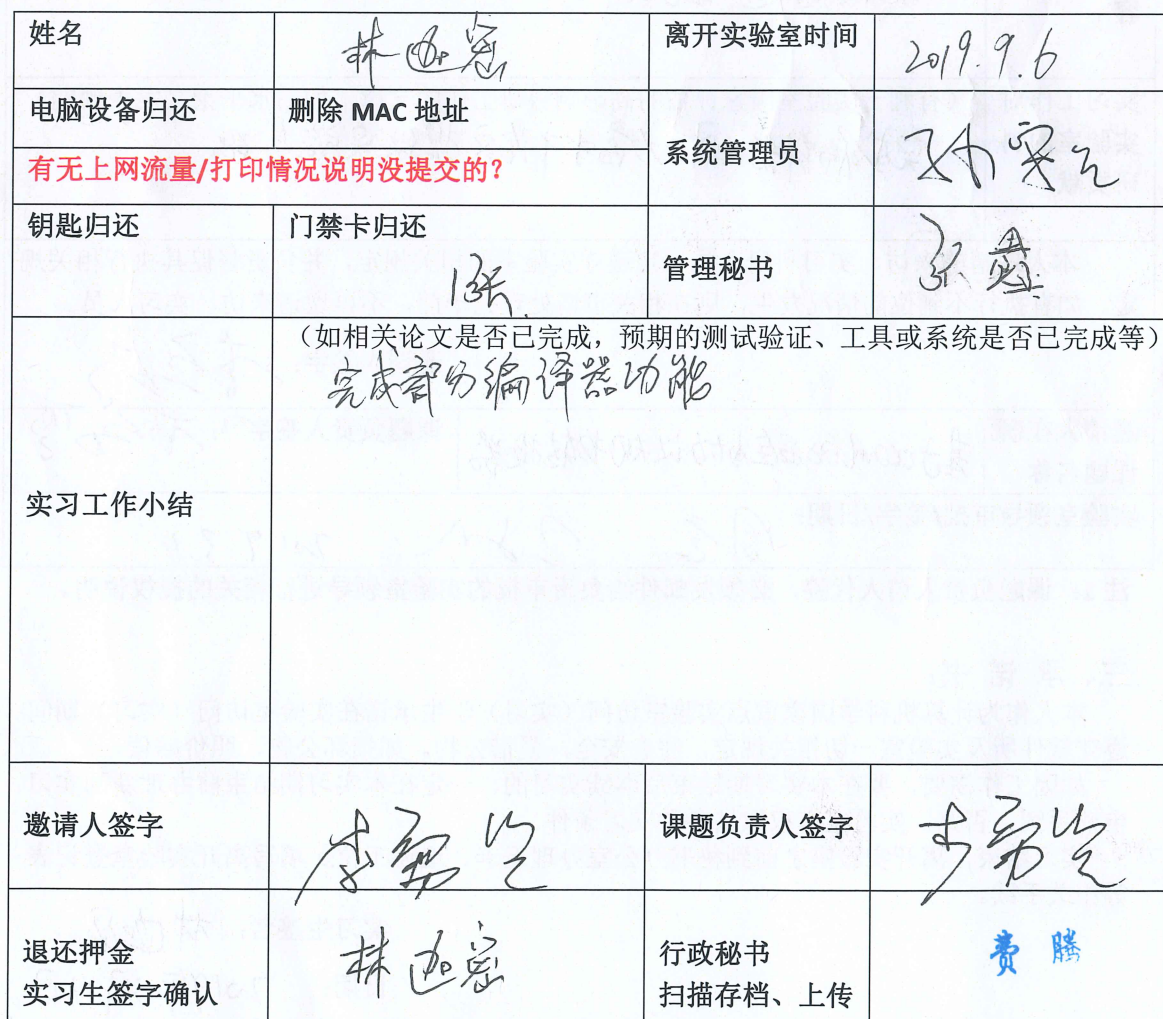 姓名
林
离开实验室时间
2019.9.6
电脑设备归还
删除 MAC 地址
系统管理员
有无上网流量/打印情况说明没提交的?
钥匙归还
门禁卡归还
管理秘书
(如相关论文是否已完成,预期的测试验证、工具或系统是否已完成等)
完成部分编译器功能
实习工作小结
邀请人签字
李勇
课题负责人签字
退还押金
实习生签字确认
林
行政秘书
扫描存档、上传
费腾